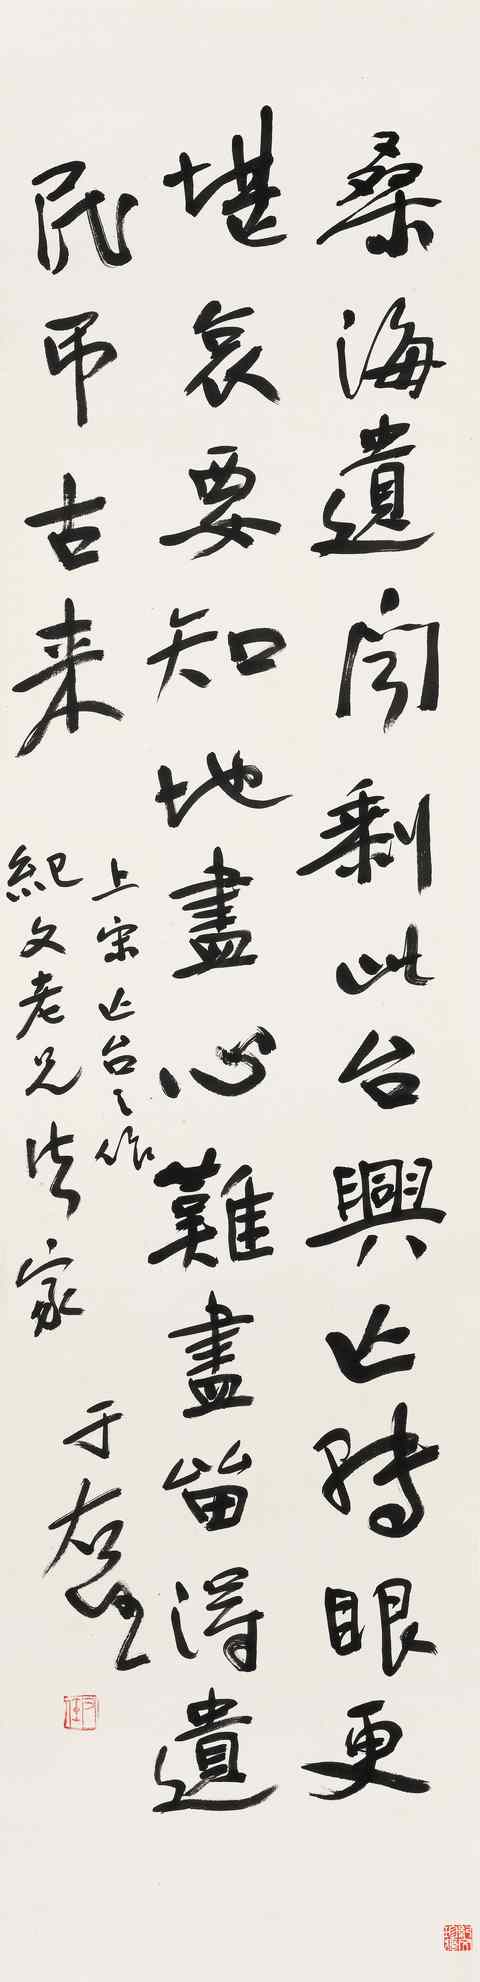 桑海遺聞剩此台興亡轉眼更
堪哀要知地盡心難盡留得遺
民吊古来
上宋亡台之作
紀文老兄法家
于右任
右任